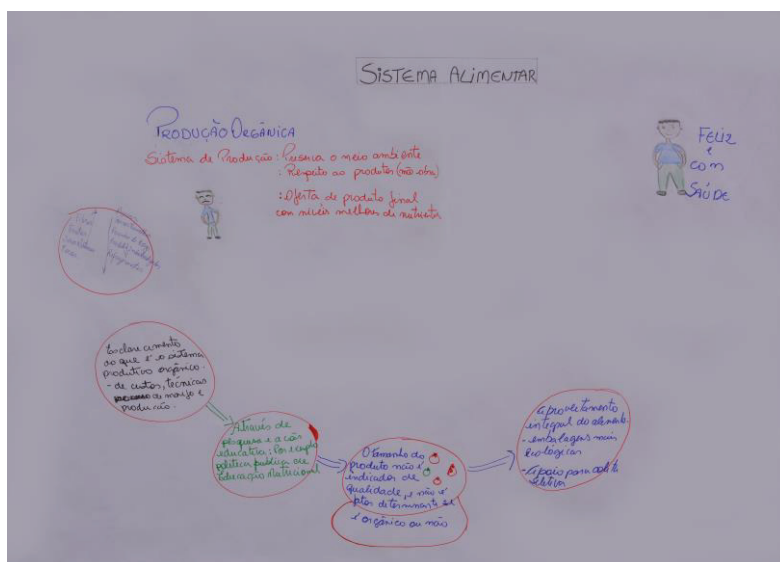 SISTEMA ALIMENTAR
PRODUÇÃO ORGÂNICA
Sistema de Produção: Preserva o meio ambiente
: Respeito ao produtor (mão-obra)
: Oferta de produto final
com níveis melhores de nutrientes
FELIZ
e
COM
SAÚDE
Esclarecimento
do que é o sistema
produtivo orgânico.
- de custos, técnicas
de manejo e
produção.
Através de
pesquisa e ação
educativa: Por exemplo
política pública de
Educação Nutricional
O tamanho do
produto não é
indicador de
qualidade, e não é
determinante se
é orgânico ou não
Aproveitamento
integral do alimento
- embalagens mais
ecológicas
- Apoio para coleta
seletiva